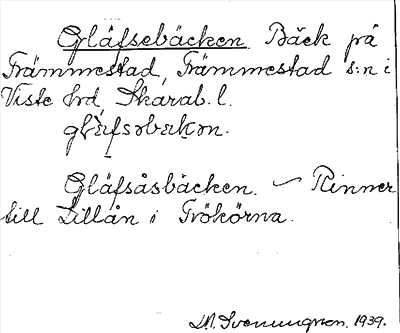 Gläfsebäcken. Bäck på
Främmestad, Främmestad s:n i
Viste hrd, Skarab. l.
glàfsəbɛkən.
Gläfsåsbäcken. ~ Rinner
till Lillån i Frökörna.
1939.